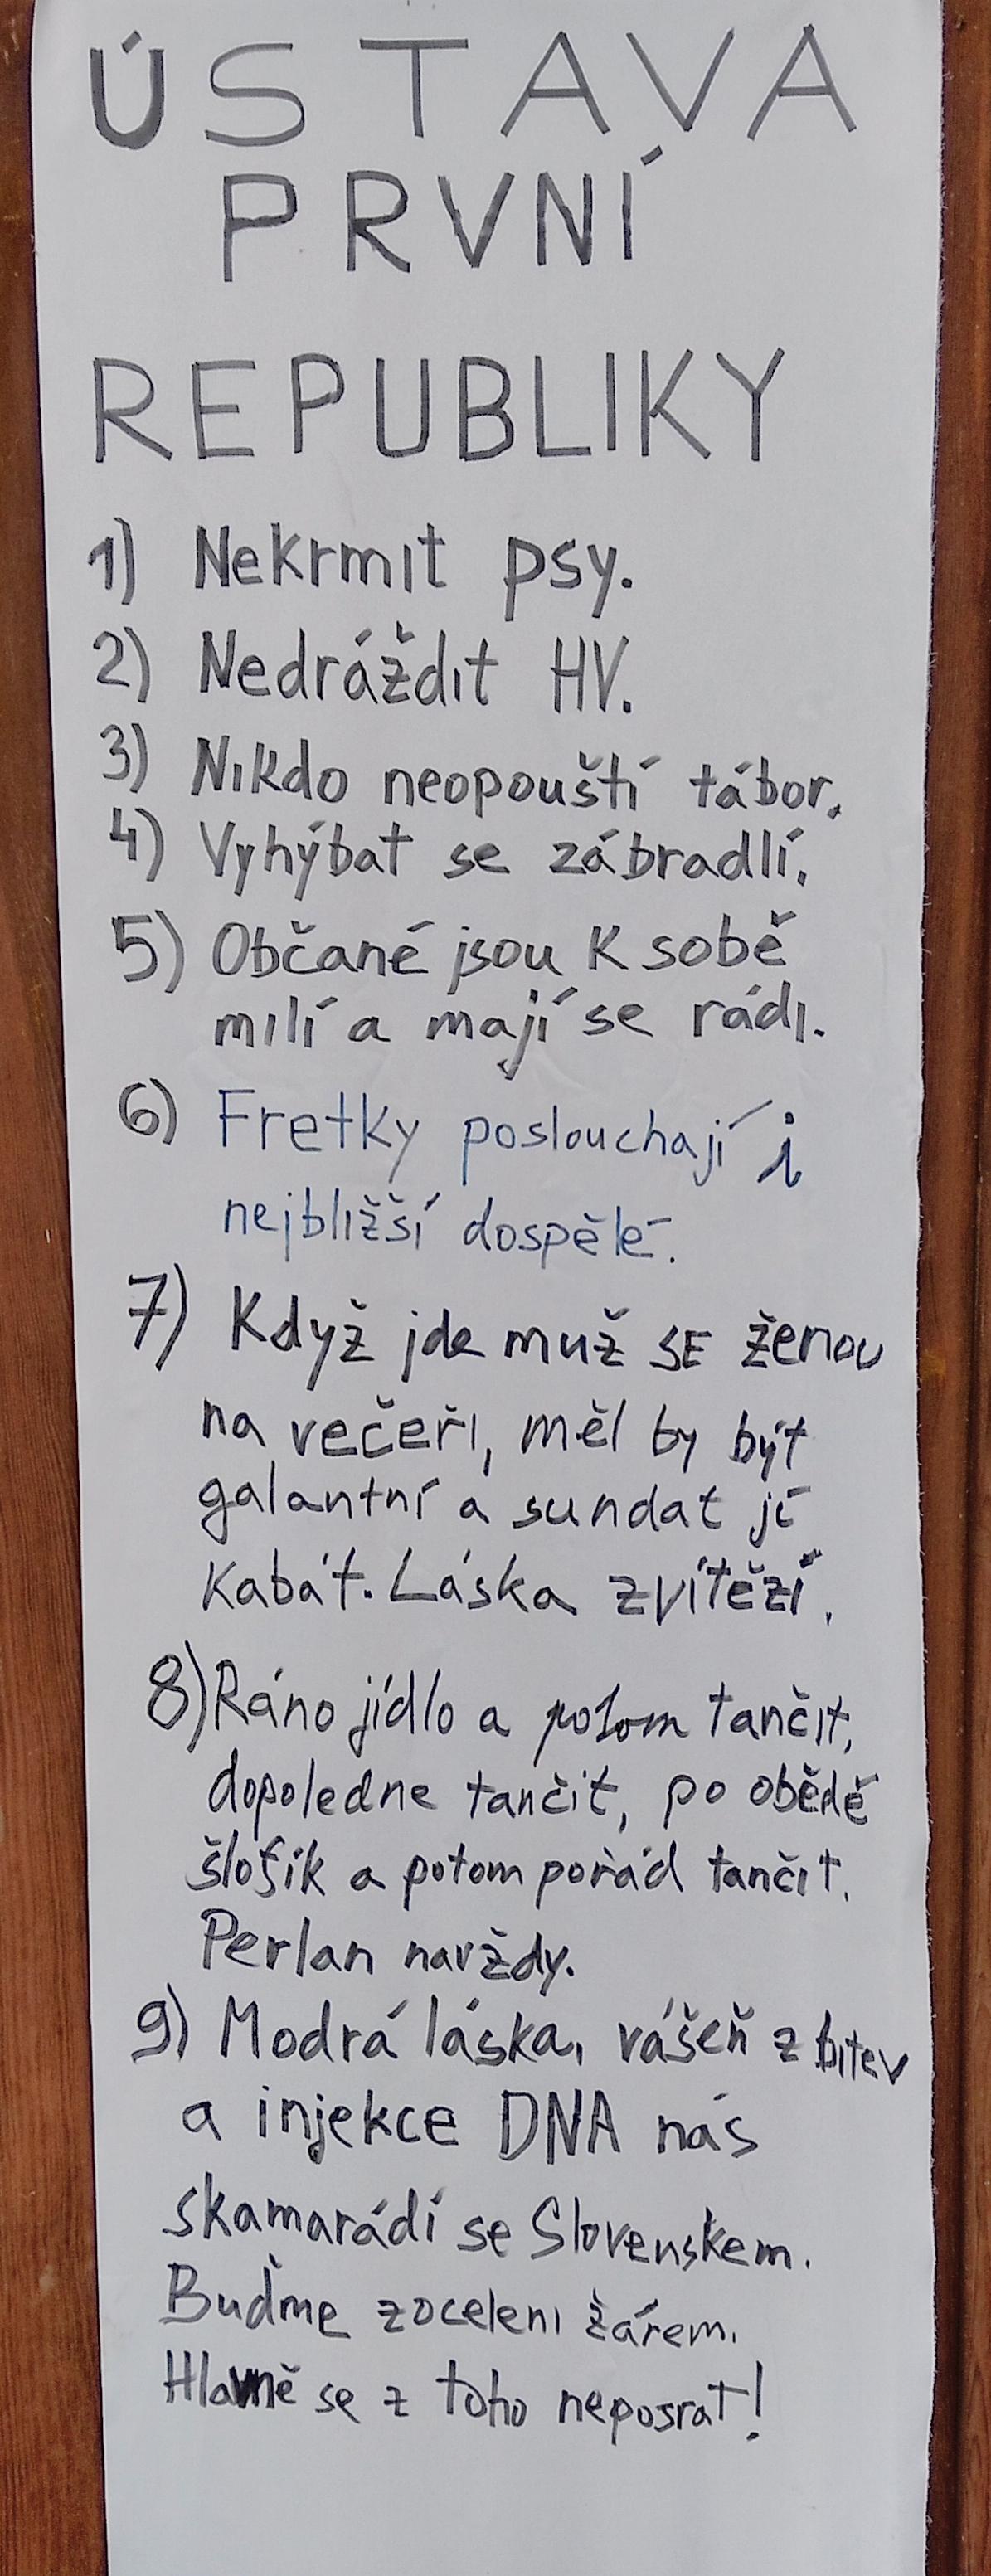 ÚSTAVA
PRVNÍ
REPUBLIKY
1) Nekrmit psy.
2) Nedráždit HV.
3) Nikdo neopouští tábor.
4) Vyhýbat se zábradlí.
5) Občané jsou k sobě
milí a mají se rádi.
6) Fretky poslouchají i
nejbližší dospělé.
7) Když jde muž SE ženou
na večeři, měl by být
galantní a sundat jí
kabát. Láska zvítězí.
8) Ráno jídlo a potom tančit,
dopoledne tančit, po obědě
šlofík a potom pořád tančit.
Perlan navždy.
9) Modrá láska, vášeň z bitev
a injekce DNA nás
skamarádí se Slovenskem.
Buďme zoceleni žářem.
Hlavně se z toho neposrat!